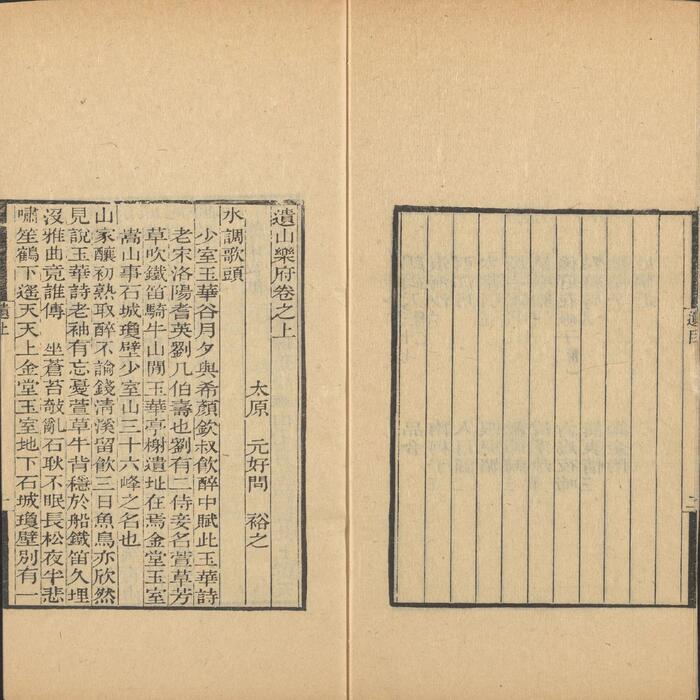 遺目
二
遺山樂府卷之上
太原　元好問　裕之
水調歌頭
少室玉華谷月夕與希顏欽叔飲醉中賦此玉華詩
老宋洛陽耆英劉几伯壽也劉有二侍妾名萱草芳
草吹鐵笛騎牛山間玉華亭榭遺址在焉金堂玉室
嵩山事石城瓊壁少室山三十六峰之名也
山家釀初熟取醉不論錢清溪留飲三日魚鳥亦欣然
見說玉華詩老袖有忘憂萱草牛背穩於船鐵笛久埋
沒雅曲竟誰傳　坐蒼苔敧亂石耿不眠長松夜半悲
嘯笙鶴下遙天天上金堂玉室地下石城瓊壁別有一
遺上
一